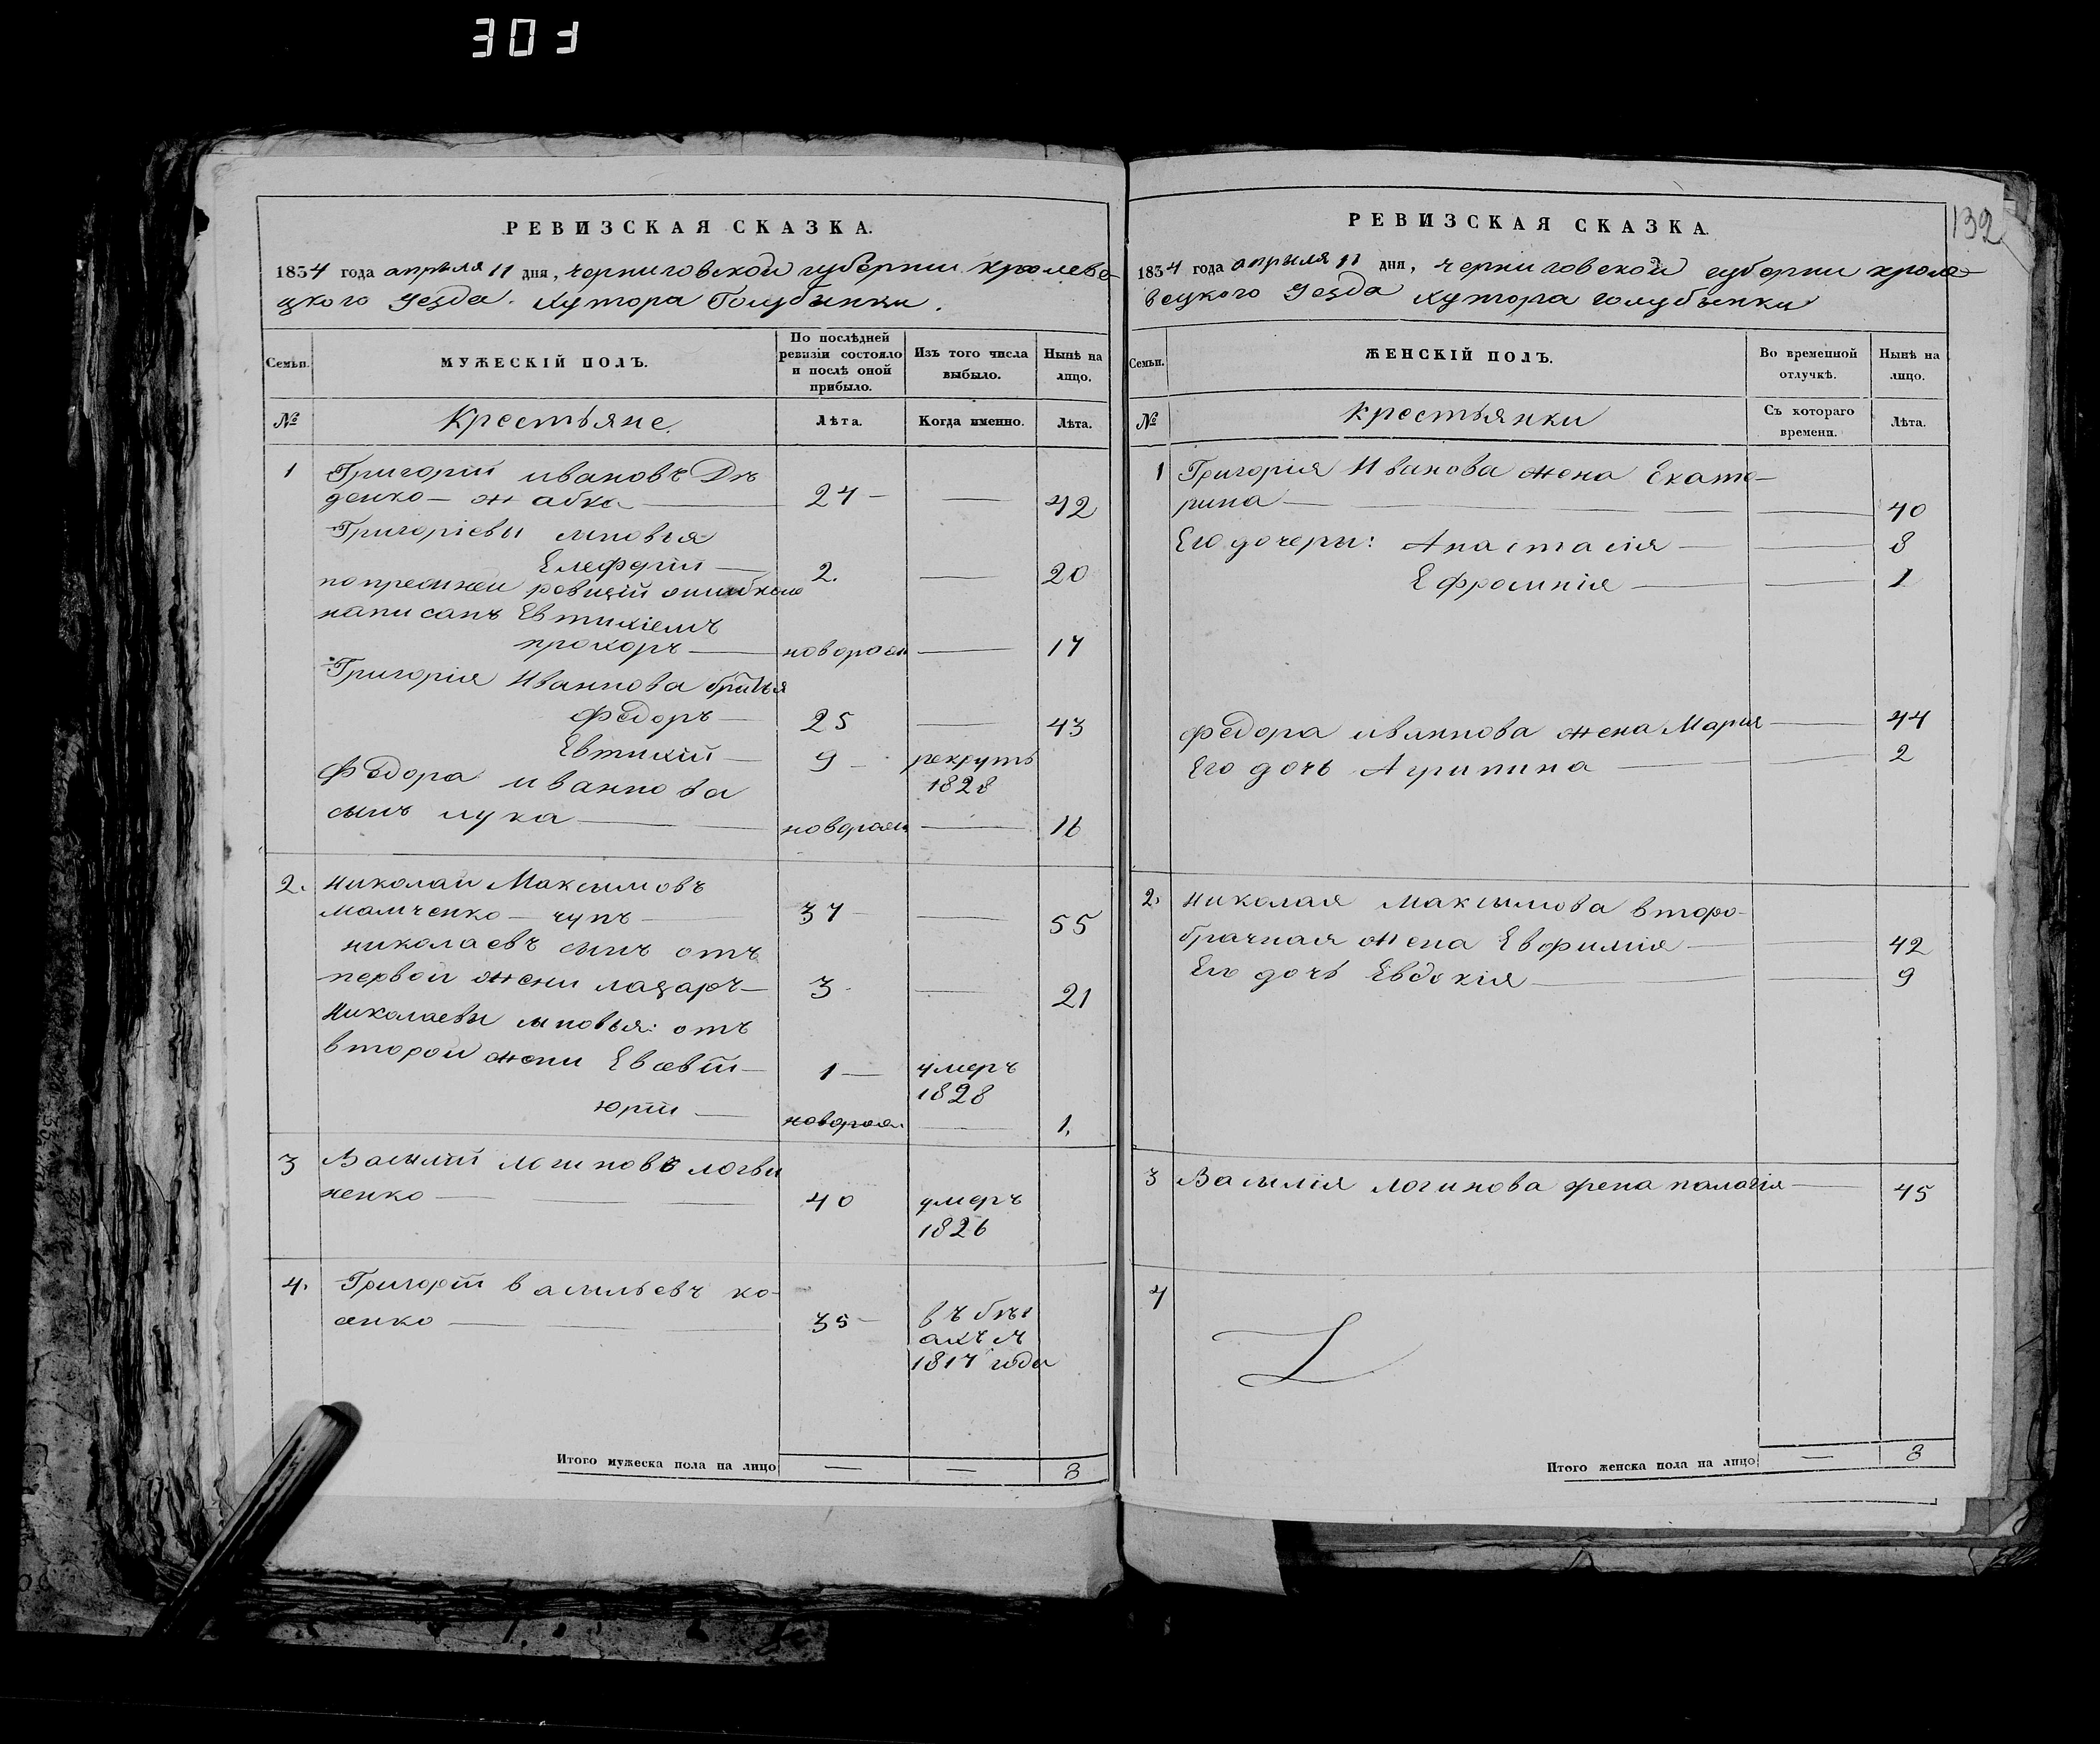 30
132
РЕВИЗСКАЯ СКАЗКА.
1834 года апрѣля 11 дня, черниговской губерніи кролеве-
цкого уезда. хутора Голубынки.
Семьи.
МУЖЕСКІЙ ПОЛЪ.
По послѣдней ревизіи состояло и послѣ оной прибыло.
Изъ того числа выбыло.
Нынѣ на лицо.
№
Крестьяне.
Лѣта.
Когда именно.
Лѣта.
1 Григорій ивановъ Дѣ
денко — жабка — 24 — — 42
Григоріевы сыновья
Елеферій — 2. — 20
по прежней ревизій ошибкою
написанъ Евтихіемъ
прохоръ —новорож — 17
Григорія Иванова братья
Федоръ — 25 — 43
Евтихій — 9 — рекрутъ
1828
Федора иванова
сынъ лука — новорож — 16
2. николай Максимовъ
мамченко — чупъ — 37 — 55
николаевъ сынъ отъ
первой жени лазаръ — 3 — 21
Николаеви сыновья: отъ
второй жени Евсевій — 1 — умеръ
1828
юрій — новорож. — 1.
3 Василій логиновъ логви
ненко — 40 умеръ
1826
4. Григорій васильевъ ко-
сенко — 35 — въ бѣг
ахъ съ
1817 года
Итого мужеска пола на лицо — — 8
РЕВИЗСКАЯ СКАЗКА.
1834 года апрыля 11 дня, черниговской губерни кроле-
вецкого уезда хутора голубынки
Семьи.
ЖЕНСКІЙ ПОЛЪ.
Во временной отлучкѣ.
Нынѣ на лицо.
№
крестьянки
Съ котораго времени.
Лѣта.
1 Григорія Иванова жена Екате-
рина — — 40
Его дочеры: Анастасія — — 8
Ефросинія — — 1
федора иванова жена Мария — 44
Его дочь Агрипина — 2
2. николая максимова второ-
брачная жена Евфимія — 42
Его дочь Евдокія — — 9
3 Василія логинова жена палагія — 45
4
Итого женска пола на лицо — 8